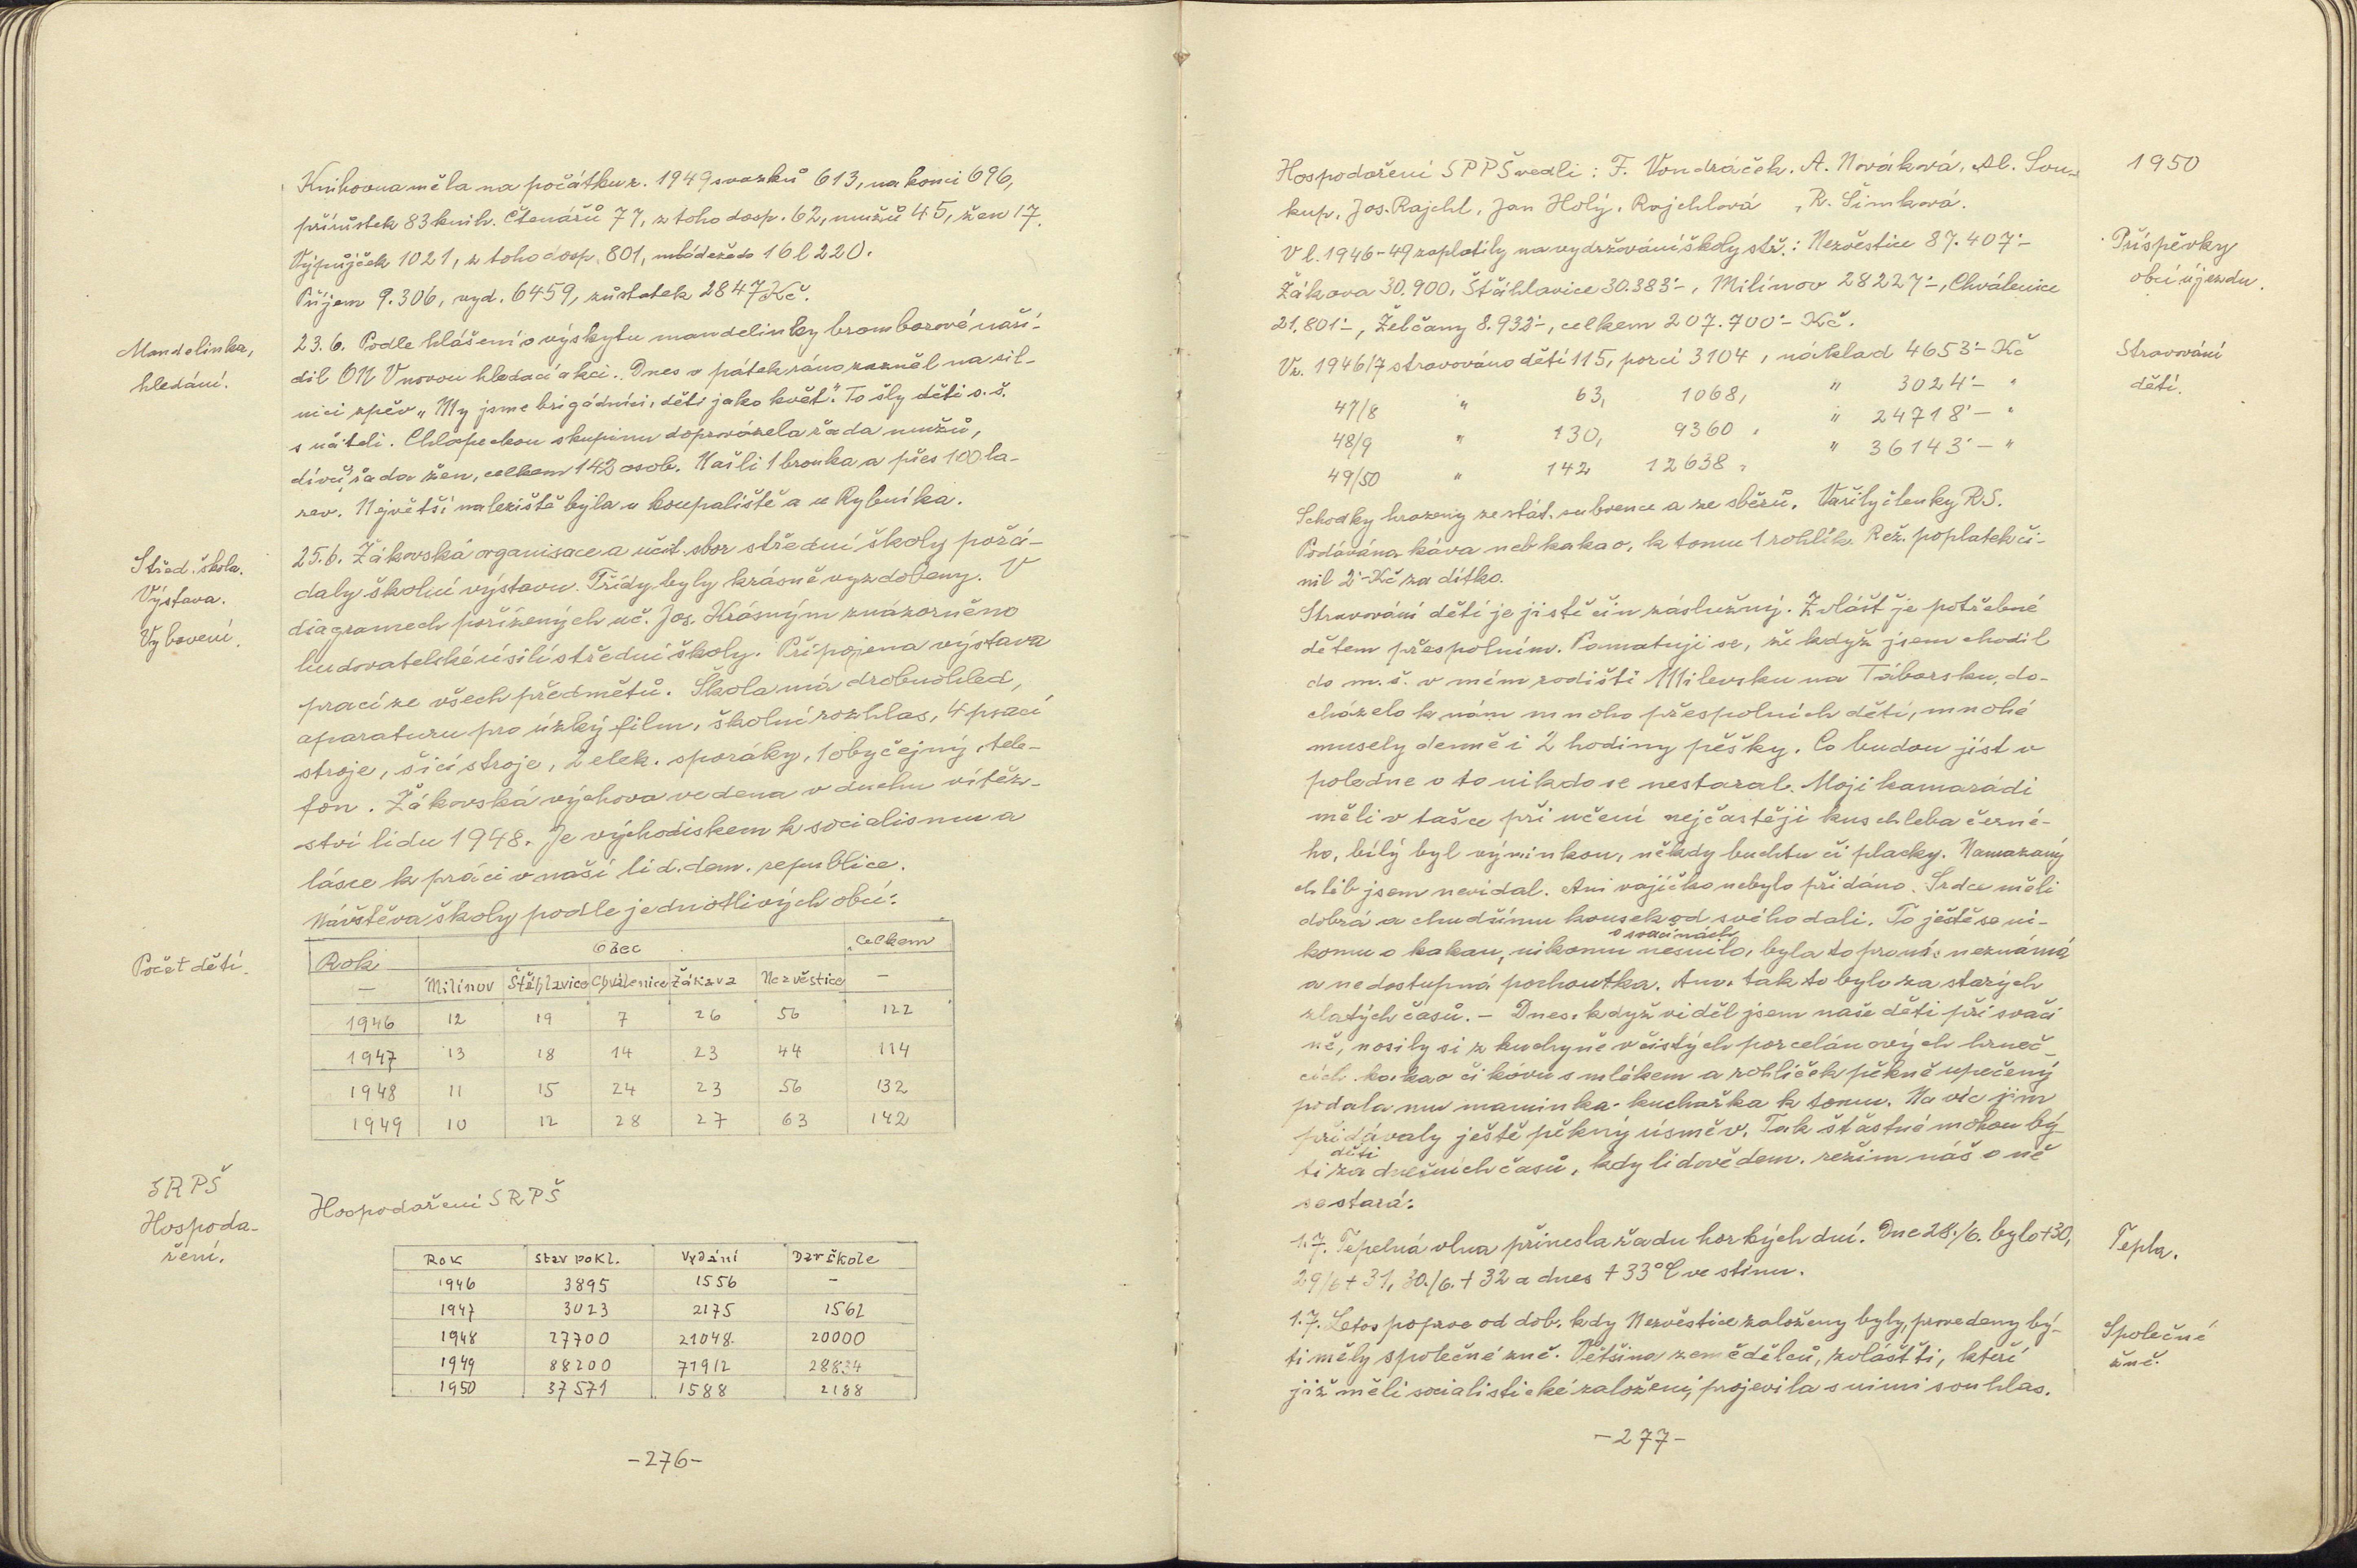 Knihovna měla na počátku r. 1949 svazků 613, na konci 696,
přírůstek 83 knih. Čtenářů 77, z toho dosp. 62, mužů 45, žen 17.
Výpůjček 1021, z toho dosp. 801, mládeže do 16 l 220.
Příjem 9.306, vyd. 6459, zůstatek 2847 Kč.
Mandelinka,
hledání.
23.6. Podle hlášení o výskytu mandelinky bramborové naří-
dil ONV novou hledací akci. Dnes v pátek ráno zazněl na sil-
nici zpěv „My jsme brigádníci, děti jako květ." To šly děti s.š.
s učiteli. Chlapeckou skupinu doprovázela řada mužů,
dívčí řada žen, celkem 142 osob. Našli 1 brouka a přes 100 la-
rev. Největší naleziště byla u koupaliště a u Rybníka.
Střed. škola.
Výstava.
Vybavení.
25.6. Žákovská organisace a učit. sbor střední školy pořá-
daly školní výstavu. Třídy byly krásně vyzdobeny. V
diagramech pořízených uč. Jos. Krásným znázorněno
budovatelské úsilí střední školy. Připojena výstava
prací ze všech předmětů. Škola má drobnohled,
aparaturu pro úzký film, školní rozhlas, 4 psací
stroje, šicí stroje, 2 elek. sporáky, 1 obyčejný, tele-
fon. Žákovská výchova vedena v duchu vítěz-
ství lidu 1948. Je východiskem k socialismu a
lásce k práci v naší lid. dem. republice.
Návštěva školy podle jednotlivých obcí:
Počet dětí.
Rok Obec Celkem
— Milínov Štěhlavice Chválenice Žákava Nezvěstice —
1946 12 19 7 26 56 122
1947 13 18 14 23 44 114
1948 11 15 24 23 56 132
1949 10 12 28 27 63 142
SRPŠ
Hospoda-
ření.
Hospodaření SRPŠ
Rok Stav pokl. Vydání Dar škole
1946 3895 1556 —
1947 3023 2175 1562
1948 27700 21048 20000
1949 88200 71912 28834
1950 37571 1588 2188
-276-
1950
Hospodaření SPPŠ vedli: F. Vondráček, A. Nováková, Al. Sou-
kup, Jos. Rajchl, Jan Holý, Rajchlová, R. Šimková.
Příspěvky
obcí újezdu.
V l. 1946-49 zaplatily na vydržování školy stř.: Nezvěstice 87.407·-
Žákava 30.900, Štáhlavice 30.383·-, Milínov 28227·-, Chválenice
21.801·-, Želčany 8.932·-, celkem 207.700·- Kč.
Stravování
dětí.
V r. 1946/7 stravováno dětí 115, porcí 3104, náklad 4653·- Kč
47/8 " 63, 1068, " 3024·- "
48/9 " 130, 9360, " 24718·- "
49/50 " 142 12638, " 36143·- "
Schodky hrazeny ze stát. subvence a ze sběrů. Vařily členky R.S.
Podávána káva neb kakao, k tomu 1 rohlík. Rež. poplatek či-
nil 2·- Kč za dítko.
Stravování dětí je jistě čin záslužný. Zvlášť je potřebné
dětem přespolním. Pamatuji se, že když jsem chodil
do m.š. v mém rodišti Milevsku na Táborsku, do-
cházelo k nám mnoho přespolních dětí, mnohé
musely denně i 2 hodiny pěšky. Co budou jíst v
poledne o to nikdo se nestaral. Moji kamarádi
měli v tašce při učení nejčastěji kus chleba černé-
ho, bílý byl výminkou, někdy buchtu či placky. Namazaný
chléb jsem nevídal. Ani vajíčko nebylo přidáno. Srdce měli
dobrá a chudšímu kousek od svého dali. To ještě se ni-
komu o kakau, nikomu o svačinách nesnilo, byla to pro ně neznámá
a nedostupná pochoutka. Ano, tak to bylo za starých
zlatých časů. - Dnes, když viděl jsem naše děti při svači
ně, nosily si z kuchyně v čistých porcelánových hrneč-
cích kakao či kávu s mlékem a rohlíček pěkně upečený
podala mu maminka-kuchařka k tomu. Na víc jim
přidávaly ještě pěkný úsměv. Tak šťastné mohou bý-
ti děti za dnešních časů, kdy lidovědem. režim náš o ně
se stará.
Tepla.
1.7. Tepelná vlna přinesla řadu horkých dní. Dne 28./6. bylo +30,
29/6 + 31, 30./6. + 32 a dnes + 33°C ve stínu.
Společné
žně.
1.7. Letos poprve od dob, kdy Nezvěstice založeny byly, provedeny bý-
ti měly společné žně. Většina zemědělců, zvlášť ti, kteří
již měli socialistické založení, projevila s nimi souhlas.
-277-